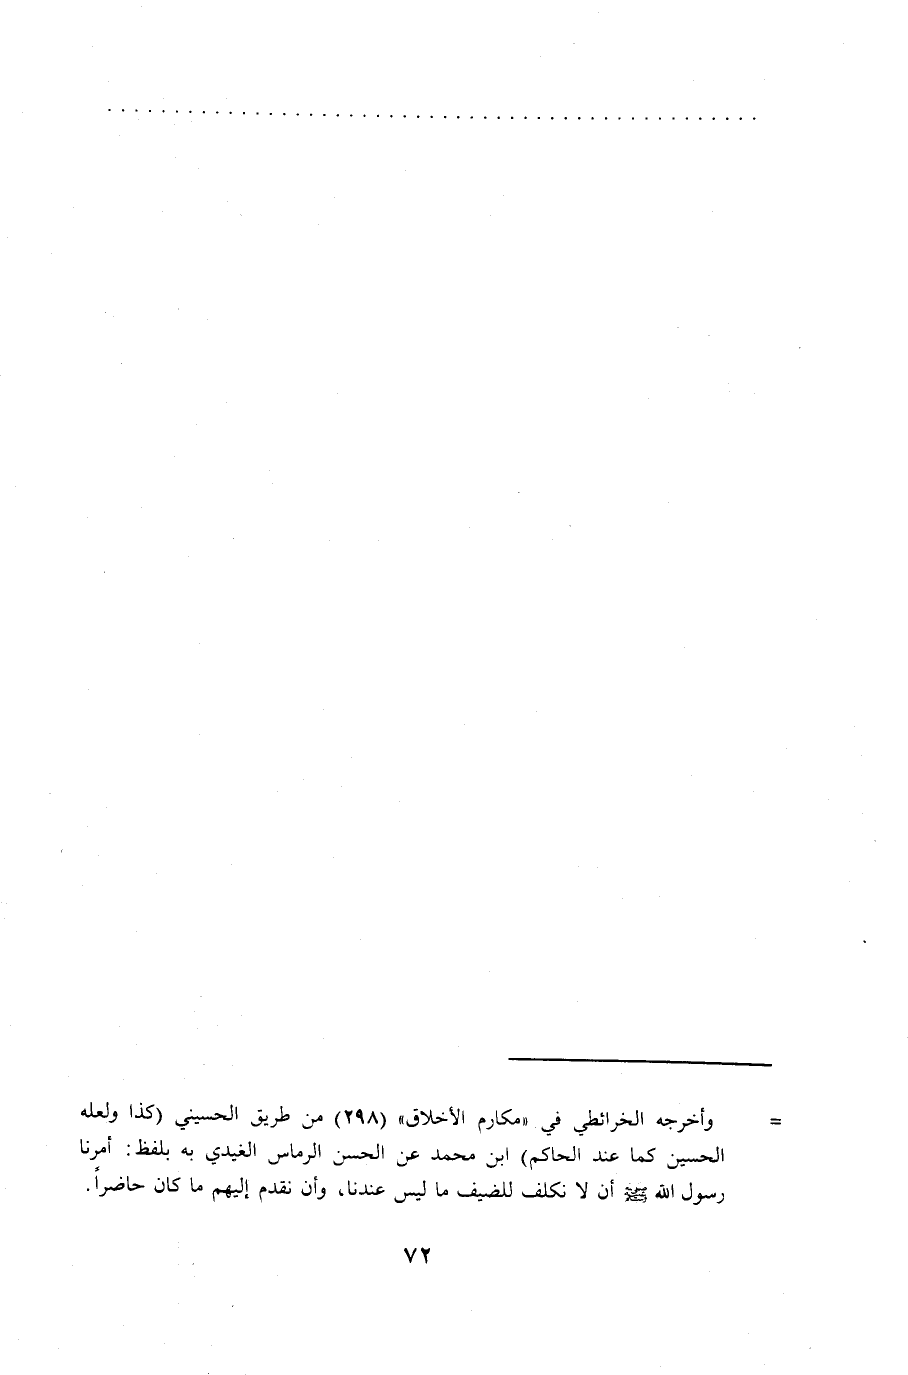 . . . . . . . . . . . . . . . . . . . . . . . . . . . . . . . . . . . . . . . . . . . . . . . . .
= وأخرجه الخرائطي في «مكارم الأخلاق» (٢٩٨) من طريق الحسيني (كذا ولعله
الحسين كما عند الحاكم) ابن محمد عن الحسن الرماس الغيدي به بلفظ: أمرنا
رسول الله ﷺ أن لا نكلف للضيف ما ليس عندنا، وأن نقدم إليهم ما كان حاضراً.
٧٢